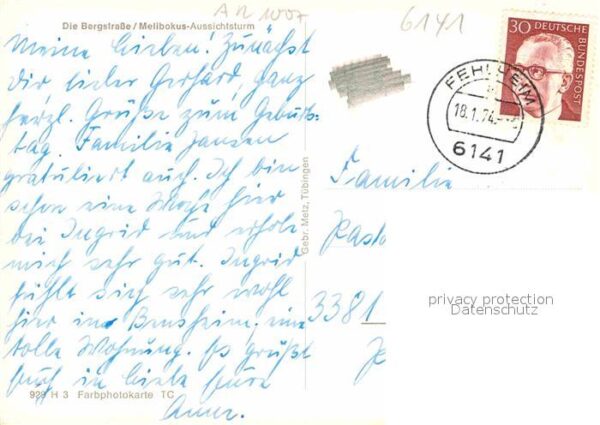 AR 1007
6141
Die Bergstraße / Melibokus-Aussichtsturm
Meine Lieben! Zunächst
Dir lieber Gerhard, ganz
herzl. Grüße zum Geburts-
tag. Familie Jansen
gratuliert auch. Ich bin
schon eine Woche hier
bei Ingrid und erhole
mich sehr gut. Ingrid
fühlt sich sehr wohl
hier in Bensheim, eine
tolle Wohnung. Es grüßt
Euch in Liebe Eure
Anne.
926 H 3 Farbphotokarte TC
Gebr. Metz, Tübingen
30 DEUTSCHE BUNDESPOST
FEHLHEIM
18.1.74
6141
Familie
3381
privacy protection
Datenschutz